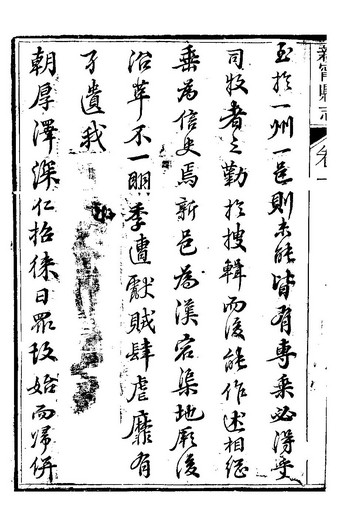 新寗縣志
卷一
至於一州一邑則未能皆有專乘必得乎
司牧者之勤於搜輯而後能作述相繼
垂為信史焉新邑為漢宕渠地厥後
沿革不一明季遭獻賊肆虐靡有
孑遺我
朝厚澤深仁招徠日眾故始而歸併